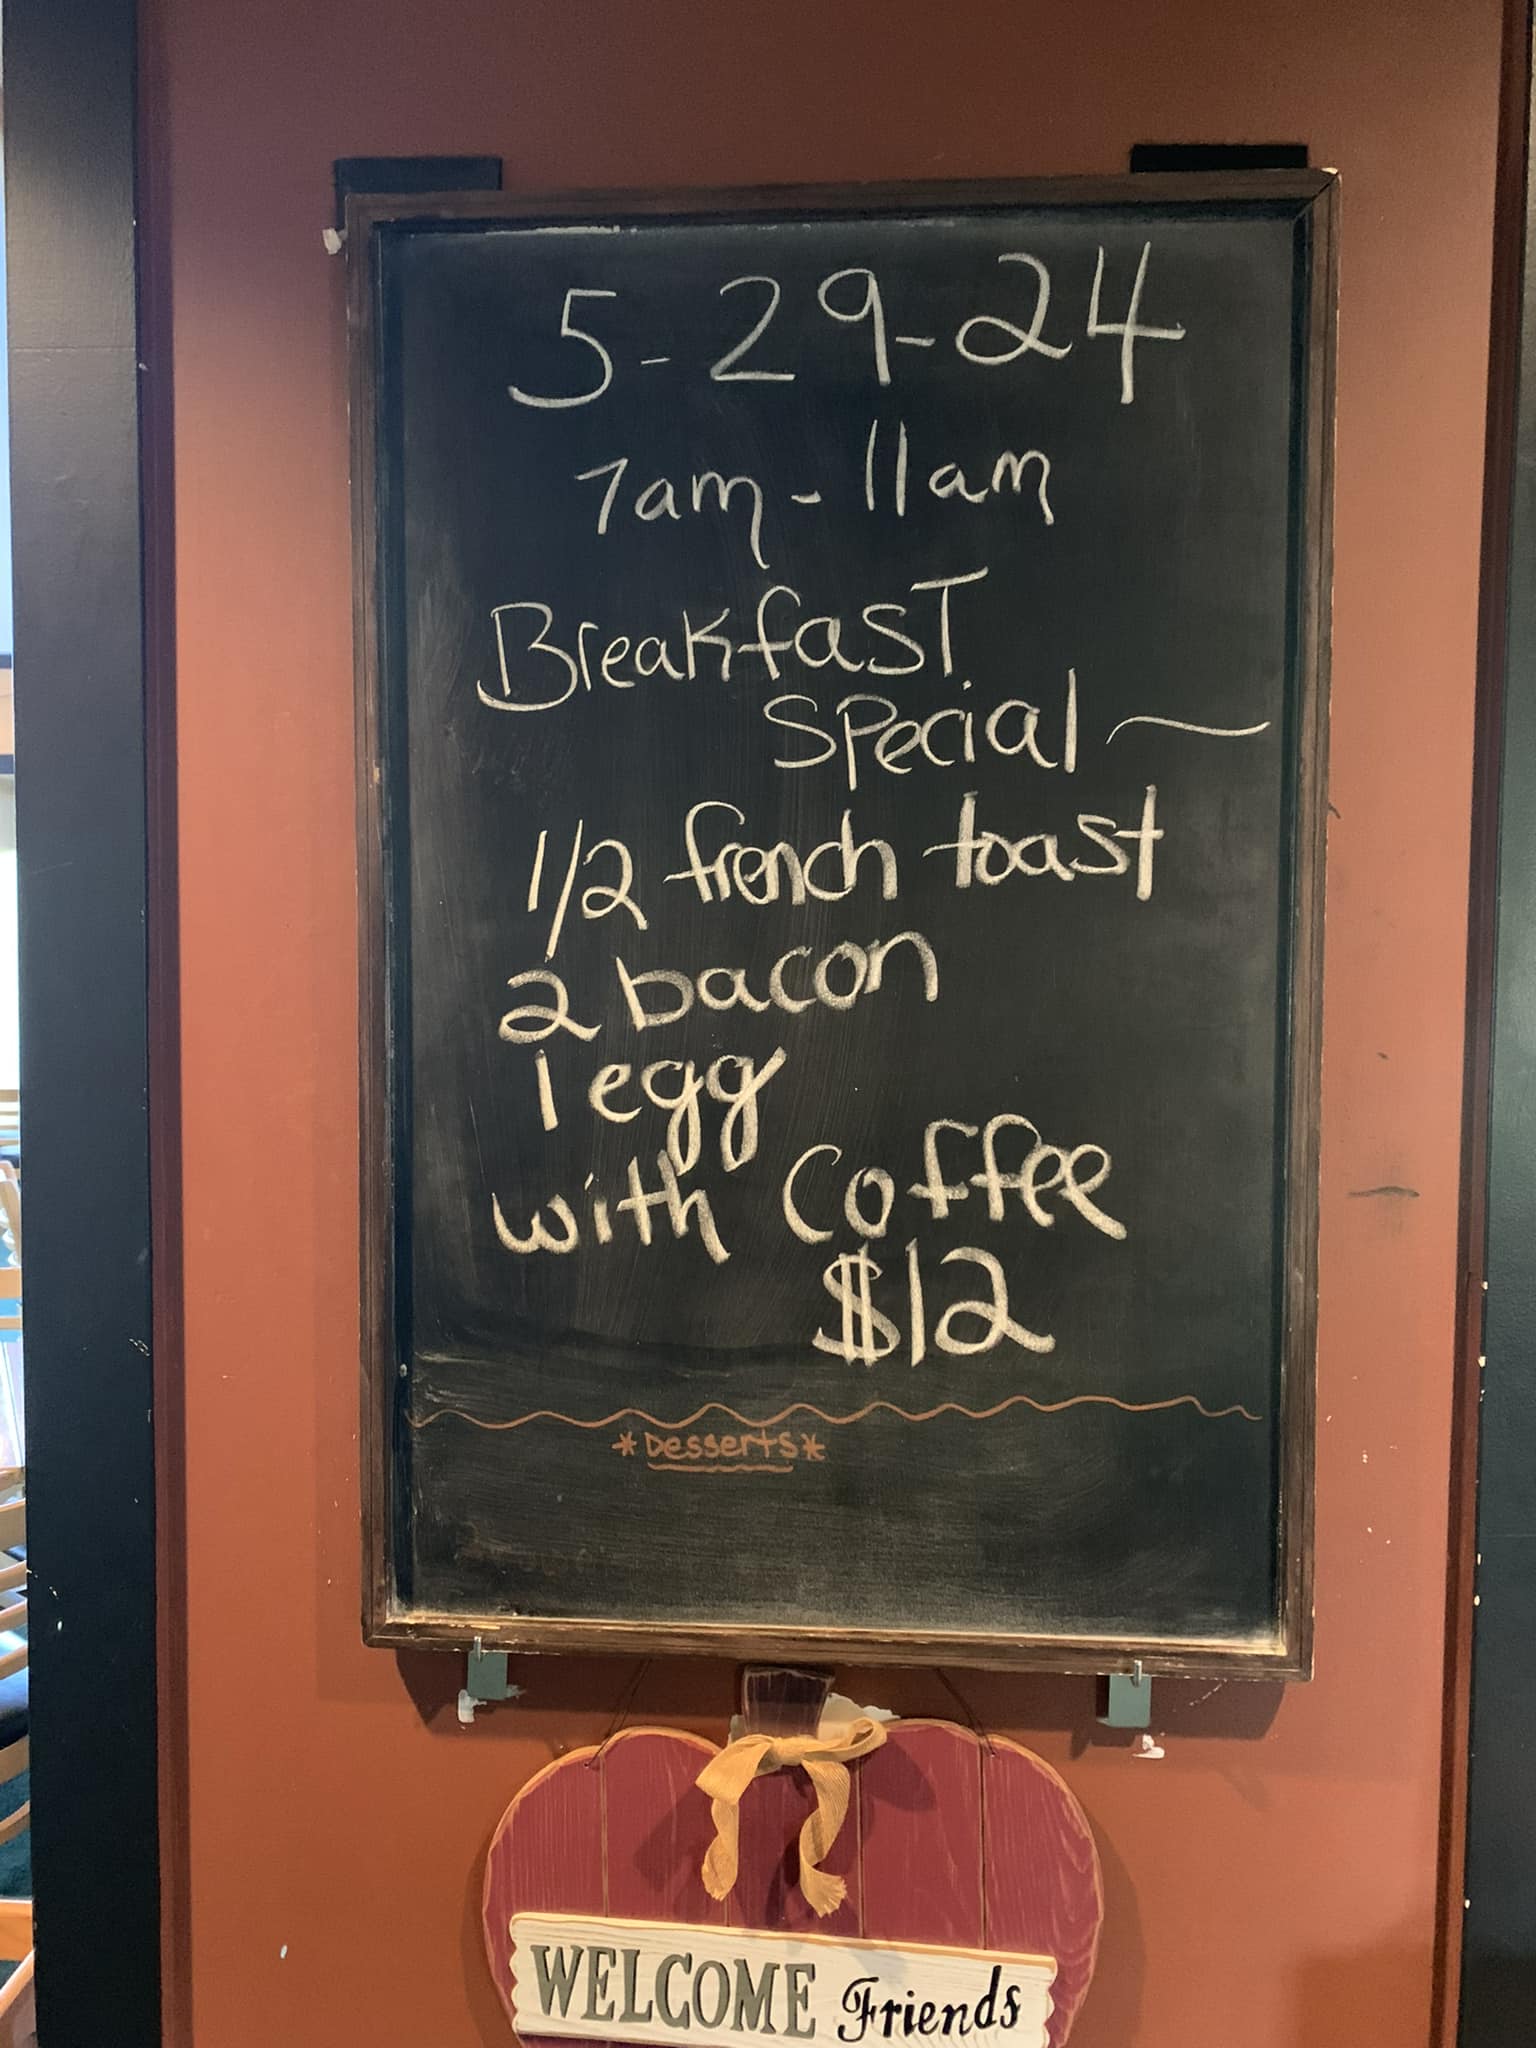 5-29-24
7am - 11am
Breakfast
Special ~
1/2 french toast
2 bacon
1 egg
with Coffee
$12
*Desserts*
WELCOME Friends